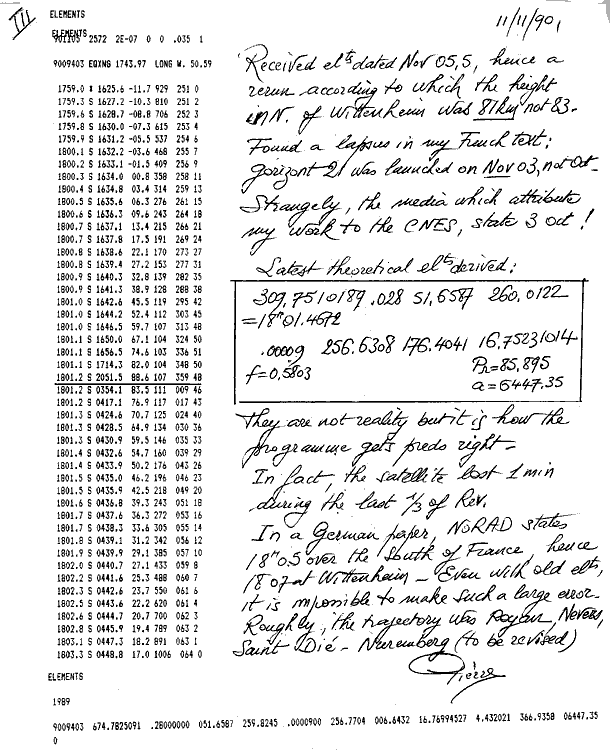 III
ELEMENTS
ELEMENTS
901105 2572 2E-07 0 0 .035 1
9009403 EQING 1743.97 LONG W. 50.59
1759.0 * 1625.6 -11.7 929 251 0
1759.3 S 1627.2 -10.3 810 251 2
1759.6 S 1628.7 -08.8 706 252 3
1759.8 S 1630.0 -07.3 615 253 4
1759.9 S 1631.2 -05.5 537 254 6
1800.1 S 1632.2 -03.6 468 255 7
1800.2 S 1633.1 -01.5 409 256 9
1800.3 S 1634.0 00.8 358 258 11
1800.4 S 1634.8 03.4 314 259 13
1800.5 S 1635.6 06.3 276 261 15
1800.6 S 1636.3 09.6 243 264 18
1800.7 S 1637.1 13.4 215 266 21
1800.7 S 1637.8 17.5 191 269 24
1800.8 S 1638.6 22.1 170 273 27
1800.8 S 1639.4 27.2 153 277 31
1800.9 S 1640.3 32.8 139 282 35
1800.9 S 1641.3 38.9 128 288 38
1801.0 S 1642.6 45.5 119 295 42
1801.0 S 1644.2 52.4 112 303 45
1801.0 S 1646.5 59.7 107 313 48
1801.1 S 1650.0 67.1 104 324 50
1801.1 S 1656.5 74.6 103 336 51
1801.1 S 1714.3 82.0 104 348 50
1801.2 S 2051.5 88.6 107 359 48
1801.2 S 0354.1 83.5 111 009 46
1801.2 S 0417.1 76.9 117 017 43
1801.3 S 0424.6 70.7 125 024 40
1801.3 S 0428.5 64.9 134 030 36
1801.3 S 0430.9 59.5 146 035 33
1801.4 S 0432.6 54.7 160 039 29
1801.4 S 0433.9 50.2 176 043 26
1801.5 S 0435.0 46.2 196 046 23
1801.5 S 0435.9 42.5 218 049 20
1801.6 S 0436.8 39.3 243 051 18
1801.7 S 0437.6 36.3 272 053 16
1801.7 S 0438.3 33.6 305 055 14
1801.8 S 0439.1 31.2 342 056 12
1801.9 S 0439.9 29.1 385 057 10
1802.0 S 0440.7 27.1 433 059 8
1802.2 S 0441.6 25.3 488 060 7
1802.3 S 0442.6 23.7 550 061 6
1802.5 S 0443.6 22.2 620 061 4
1802.6 S 0444.7 20.7 700 062 3
1802.8 S 0445.9 19.4 789 063 2
1803.1 S 0447.3 18.2 891 063 1
1803.3 S 0448.8 17.0 1006 064 0
ELEMENTS
1989
9009403 674.7825091 .28000000 051.6587 259.8245 .0000900 256.7704 006.6432 16.76994527 4.432021 366.9358 06447.35
0
11/11/90,
Received elts dated Nov 05,5, hence a
rerun according to which the height
in N. of Wittenheim was 81km not 83.
Found a lapsus in my French text:
Gorizont 21 was launched on Nov 03, not Oct.
Strangely, the media which attribute
my work to the CNES, state 3 oct !
Latest theoretical elts derived:
309,7510189 .028 51,6587 260,0122
=18h01.4672
.00009 256.6308 176.4041 16.75231014
f=0,5803 Ph=85,895
a=6447.35
They are not reality but it is how the
programme gets preds right.
In fact, the satellite lost 1 min
during the last 1/3 of Rev.
In a German paper, NORAD states
18h05 over the South of France, hence
18 07 at Wittenheim - Even with old elts,
it is impossible to make such a large error.
Roughly, the trajectory was Royan, Nevers,
Saint Dié - Nuremberg (to be revised)
Pierre